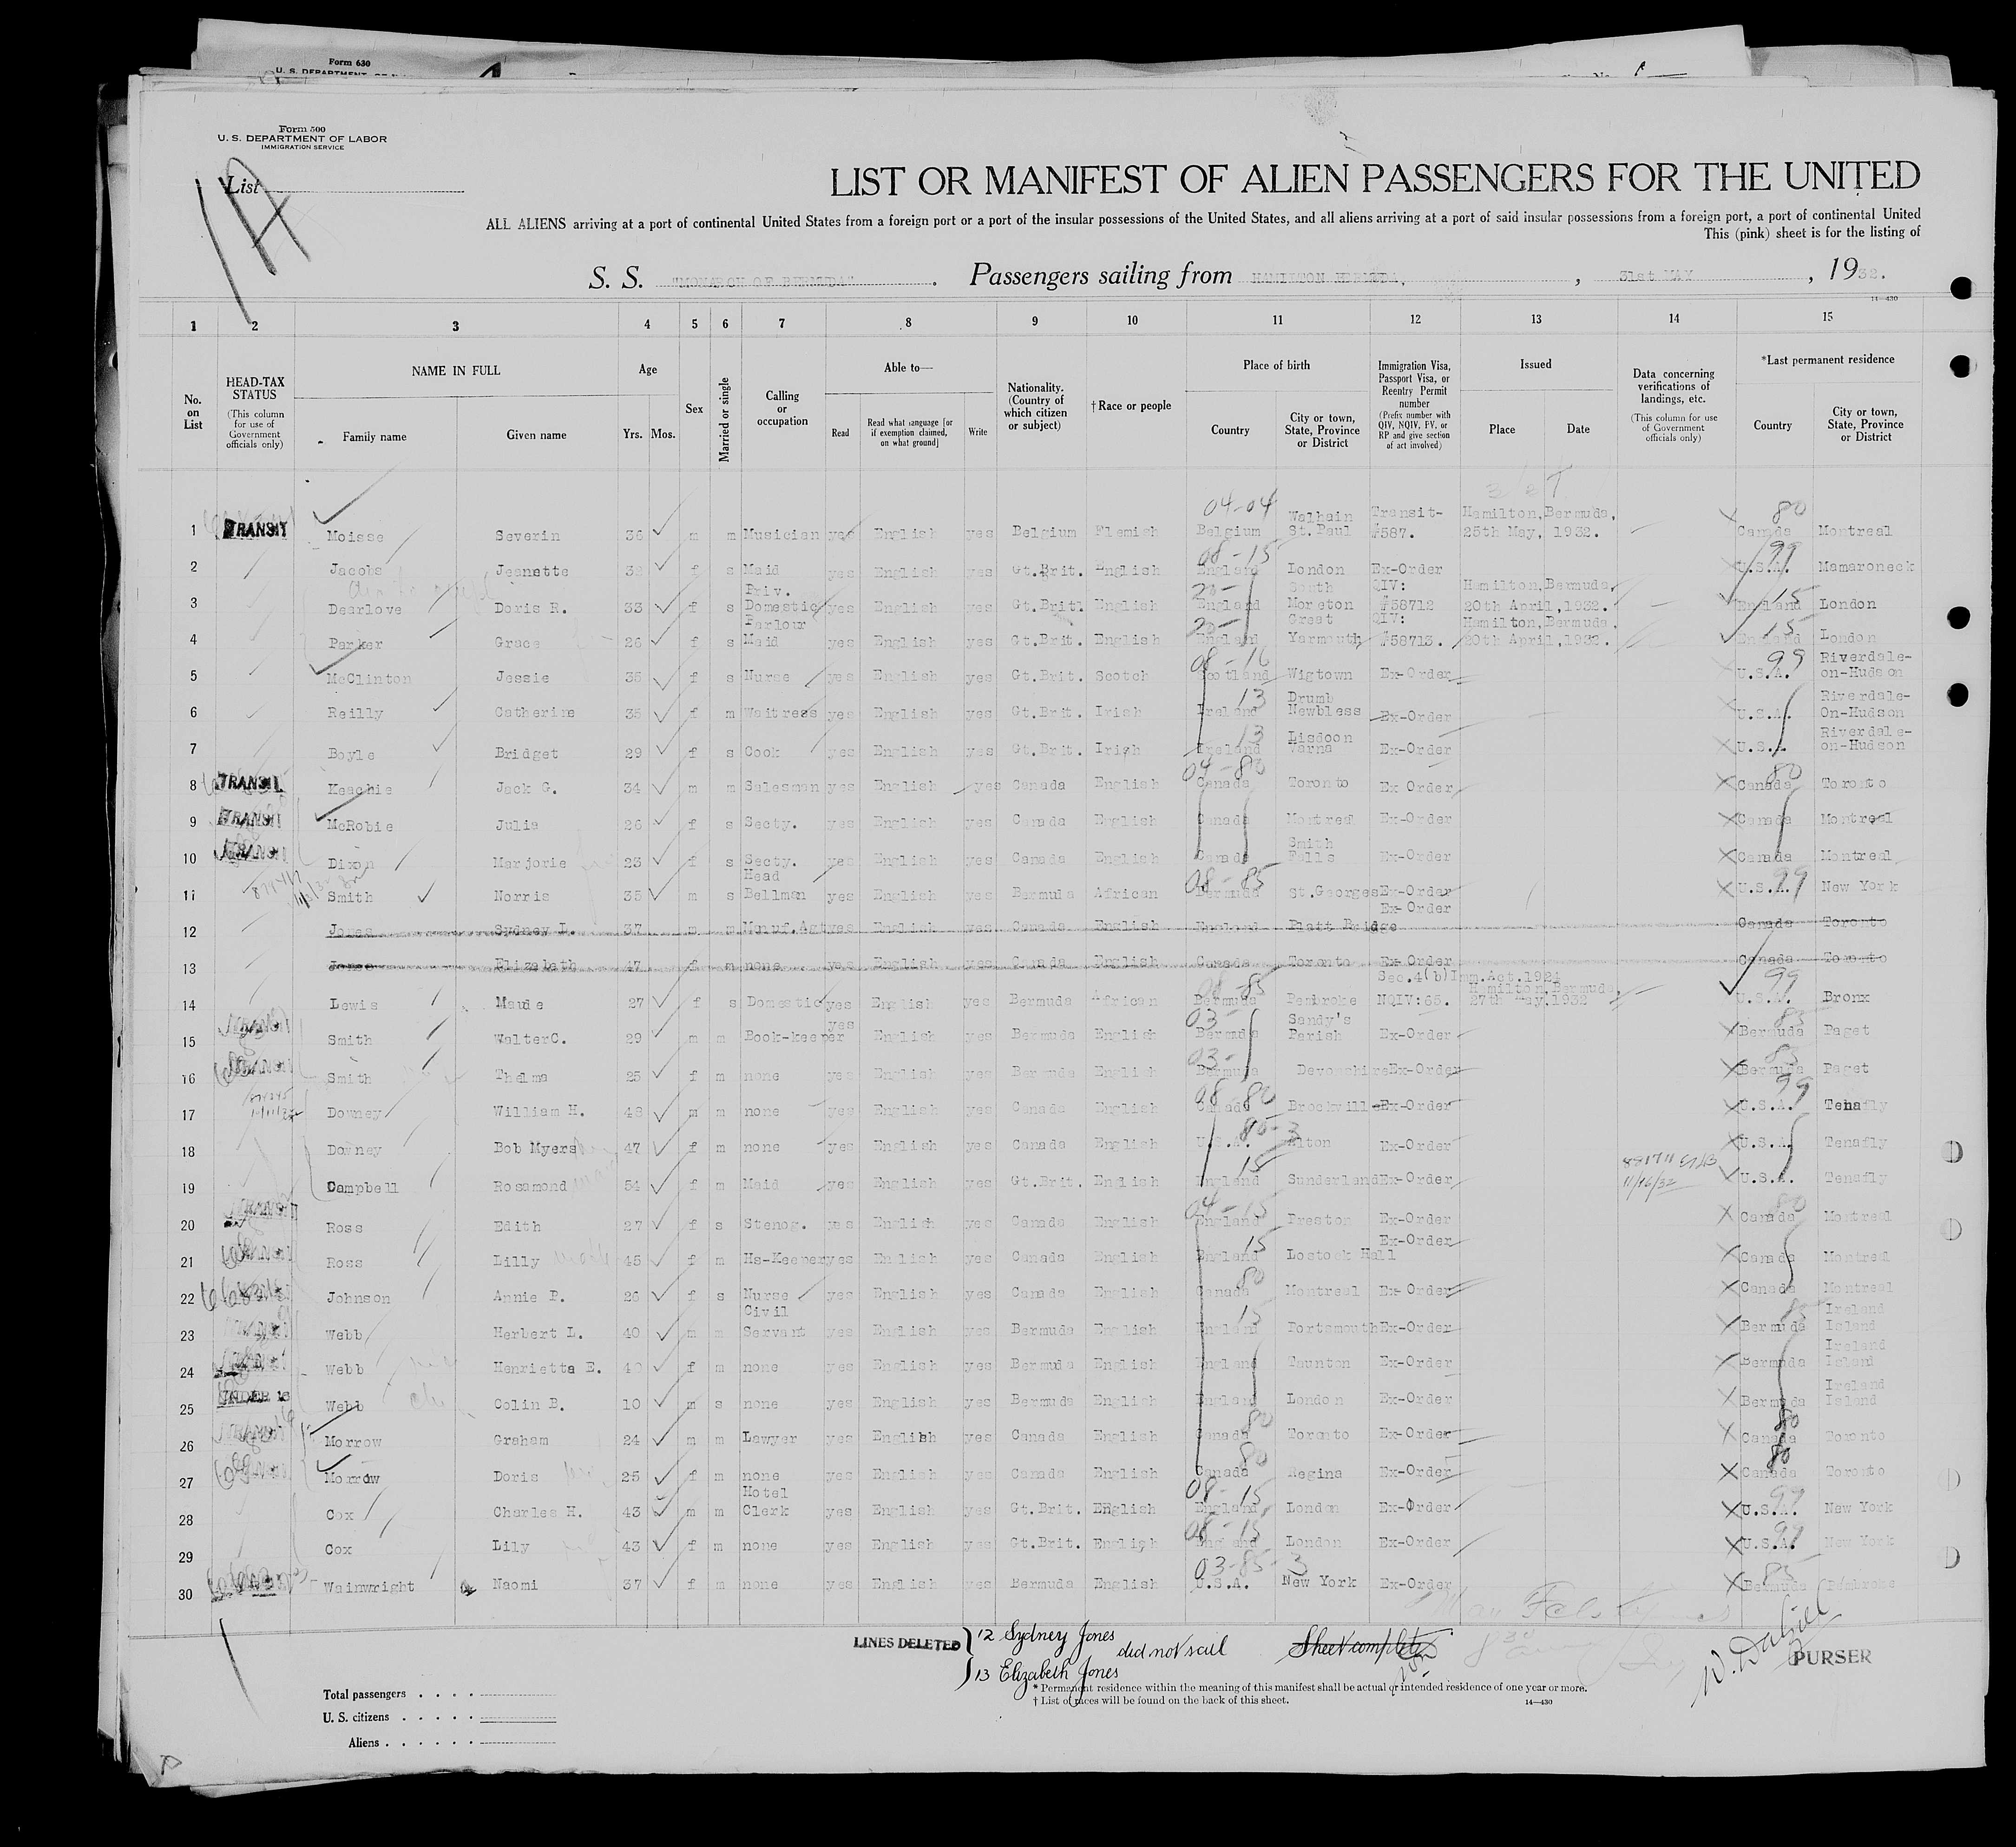 Form 630
U. S. DEPARTMENT
Form 500
U. S. DEPARTMENT OF LABOR
IMMIGRATION SERVICE
List
1A
LIST OR MANIFEST OF ALIEN PASSENGERS FOR THE UNITED
ALL ALIENS arriving at a port of continental United States from a foreign port or a port of the insular possessions of the United States, and all aliens arriving at a port of said insular possessions from a foreign port, a port of continental United
This (pink) sheet is for the listing of
S. S. "MONARCH OF BERMUDA". Passengers sailing from HAMILTON BERMUDA, , 31st MAY , 1932.
14—430
1 2 3 4 5 6 7 8 9 10 11 12 13 14 15
No. on List
HEAD-TAX STATUS (This column for use of Government officials only)
NAME IN FULL Family name Given name
Age Yrs. Mos.
Sex
Married or single
Calling or occupation
Able to— Read Read what language [or if exemption claimed, on what ground] Write
Nationality. (Country of which citizen or subject)
†Race or people
Place of birth Country City or town, State, Province or District
Immigration Visa, Passport Visa, or Reentry Permit number (Prefix number with QIV, NQIV, PV, or RP and give section of act involved)
Issued Place Date
Data concerning verifications of landings, etc. (This column for use of Government officials only)
*Last permanent residence Country City or town, State, Province or District
1 TRANSIT Moisse Severin 36 m m Musician yes English yes Belgium Flemish 04-04 Belgium Walhain St. Paul Transit- #587. Hamilton, Bermuda, 25th May, 1932. 80 Canada Montreal
2 Jacobs Jeanette f s Maid yes English yes Gt.Brit. English 08-15 England London Ex-Order 99 U.S.A. Mamaroneck
3 Dearlove Doris R. 33 f s Priv. Domestic yes English yes Gt.Brit. English England South Moreton QIV: #58712 Hamilton, Bermuda, 20th April, 1932. 15 England London
4 Parker Grace 26 f s Parlour Maid yes English yes Gt.Brit. English England Great Yarmouth QIV: #58713. Hamilton, Bermuda, 20th April, 1932. 15 England London
5 McClinton Jessie 35 f s Nurse yes English yes Gt.Brit. Scotch 08-16 Scotland Wigtown Ex-Order 99 U.S.A. Riverdale-on-Hudson
6 Reilly Catherine 35 f m Waitress yes English yes Gt.Brit. Irish 13 Ireland Drumb Newbless Ex-Order U.S.A. Riverdale-On-Hudson
7 Boyle Bridget 29 f s Cook yes English yes Gt.Brit. Irish 13 Ireland Lisdoon Varna Ex-Order U.S.A. Riverdale-on-Hudson
8 TRANSIT Keachie Jack G. 34 m m Salesman yes English yes Canada English 04-80 Canada Toronto Ex Order 80 Canada Toronto
9 TRANSIT McRobie Julia 26 f s Secty. yes English yes Canada English Canada Montreal Ex-Order Canada Montreal
10 Dixon Marjorie 23 f s Secty. yes English yes Canada English Canada Smith Falls Ex-Order Canada Montreal
11 Smith Norris 35 m s Head Bellman yes English yes Bermuda African 08-85 Bermuda St.Georges Ex-Order 99 U.S.A. New York
12 Jones Sydney L. 37 m m Manuf.Agt yes English yes Canada English England Platt Bridge Ex-Order Canada Toronto
13 Jones Elizabeth 47 f m none yes English yes Canada English Canada Toronto Ex-Order Canada Toronto
14 Lewis Maude 27 f s Domestic yes English yes Bermuda African 85 Bermuda Pembroke Sec.4(b)Imm.Act.1924 NQIV:65. Hamilton, Bermuda, 27th May, 1932 99 U.S.A. Bronx
15 Smith Walter C. 29 m m Book-keeper yes English yes Bermuda English 03- Bermuda Sandy's Parish Ex-Order 85 Bermuda Paget
16 Smith Thelma 25 f m none yes English yes Bermuda English 03- Bermuda Devonshire Ex-Order 85 Bermuda Paget
17 Downey William H. 48 m m none yes English yes Canada English 08-80 Canada Brockvill Ex-Order 99 U.S.A. Tenafly
18 Downey Bob Myers 47 f m none yes English yes Canada English U.S.A. Alton Ex-Order U.S.A. Tenafly
19 Campbell Rosamond 54 f m Maid yes English yes Gt.Brit. English 15 England Sunderland Ex-Order 11/16/32 U.S.A. Tenafly
20 Ross Edith 27 f s Stenog. yes English yes Canada English 04-15 England Preston Ex-Order 80 Canada Montreal
21 Ross Lilly 45 f m Hs-Keeper yes English yes Canada English 15 England Lostock Hall Ex-Order Canada Montreal
22 Johnson Annie P. 26 f s Nurse yes English yes Canada English 80 Canada Montreal Ex-Order Canada Montreal
23 Webb Herbert L. 40 m m Civil Servant yes English yes Bermuda English 15 England Portsmouth Ex-Order 85 Bermuda Ireland Island
24 Webb Henrietta E. 40 f m none yes English yes Bermuda English England Taunton Ex-Order Bermuda Ireland Island
25 UNDER 16 Webb Colin B. 10 m s none yes English yes Bermuda English England London Ex-Order Bermuda Ireland Island
26 Morrow Graham 24 m m Lawyer yes English yes Canada English 80 Canada Toronto Ex-Order 80 Canada Toronto
27 Morrow Doris 25 f m none yes English yes Canada English 80 Canada Regina Ex-Order 80 Canada Toronto
28 Cox Charles H. 43 m m Hotel Clerk yes English yes Gt.Brit. English 08-15 England London Ex-Order 99 U.S.A. New York
29 Cox Lily 43 f m none yes English yes Gt.Brit. English 08-15 England London Ex-Order 99 U.S.A. New York
30 Wainwright Naomi 37 f m none yes English yes Bermuda English 03-85-3 U.S.A. New York Ex-Order 85 Bermuda Pembroke
LINES DELETED } 12 Sydney Jones did not sail
13 Elizabeth Jones
Sheet complete
PURSER
* Permanent residence within the meaning of this manifest shall be actual or intended residence of one year or more.
† List of races will be found on the back of this sheet.
14—430
Total passengers . . . .
U. S. citizens . . . . .
Aliens . . . . . .